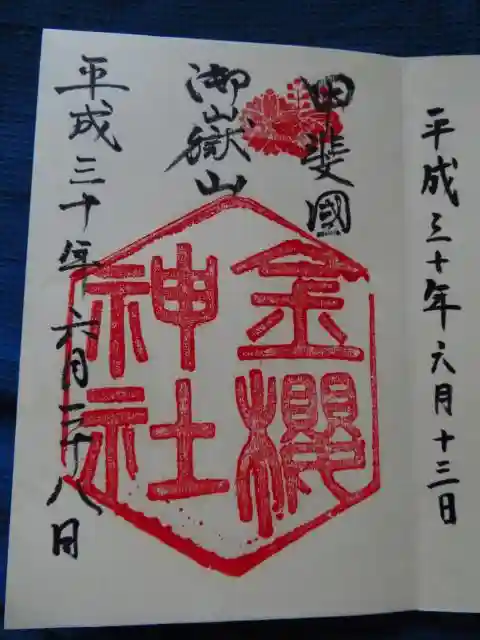 平成三十年六月十三日
甲斐國
御嶽山
金櫻
神社
平成三十年六月二十八日